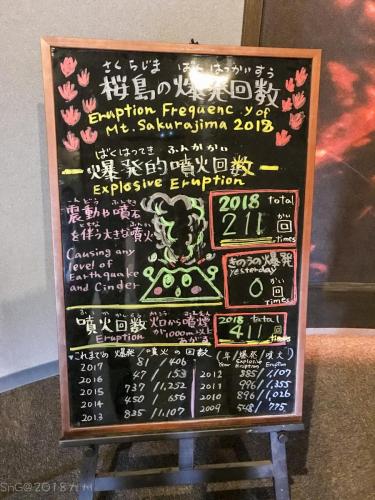 さくらじま ばくはつかいすう
桜島の爆発回数
Eruption Frequenc.y of
Mt.Sakurajima 2018
ばくはつてき ふんかかい
爆発的噴火回数
Explosive Eruption
震動や噴石
を伴う大きな噴火
Causing any
level of
Earthquake
and Cinder
2018 total
211 回
times
きのうの爆発
yesterday
0 回
times
噴火回数 火口から噴煙
Eruption が1000m以上
あがる
2018 total
411 回
times
これまでの 爆発/噴火の回数 (年/爆発/噴火)
Year Explosive Eruption Eruption
2017 81/406
2016 47/153
2015 737/1,252
2014 450/656
2013 835/1,107
2012 885/1,107
2011 996/1,355
2010 896/1,026
2009 548/775
SnG@2018九州